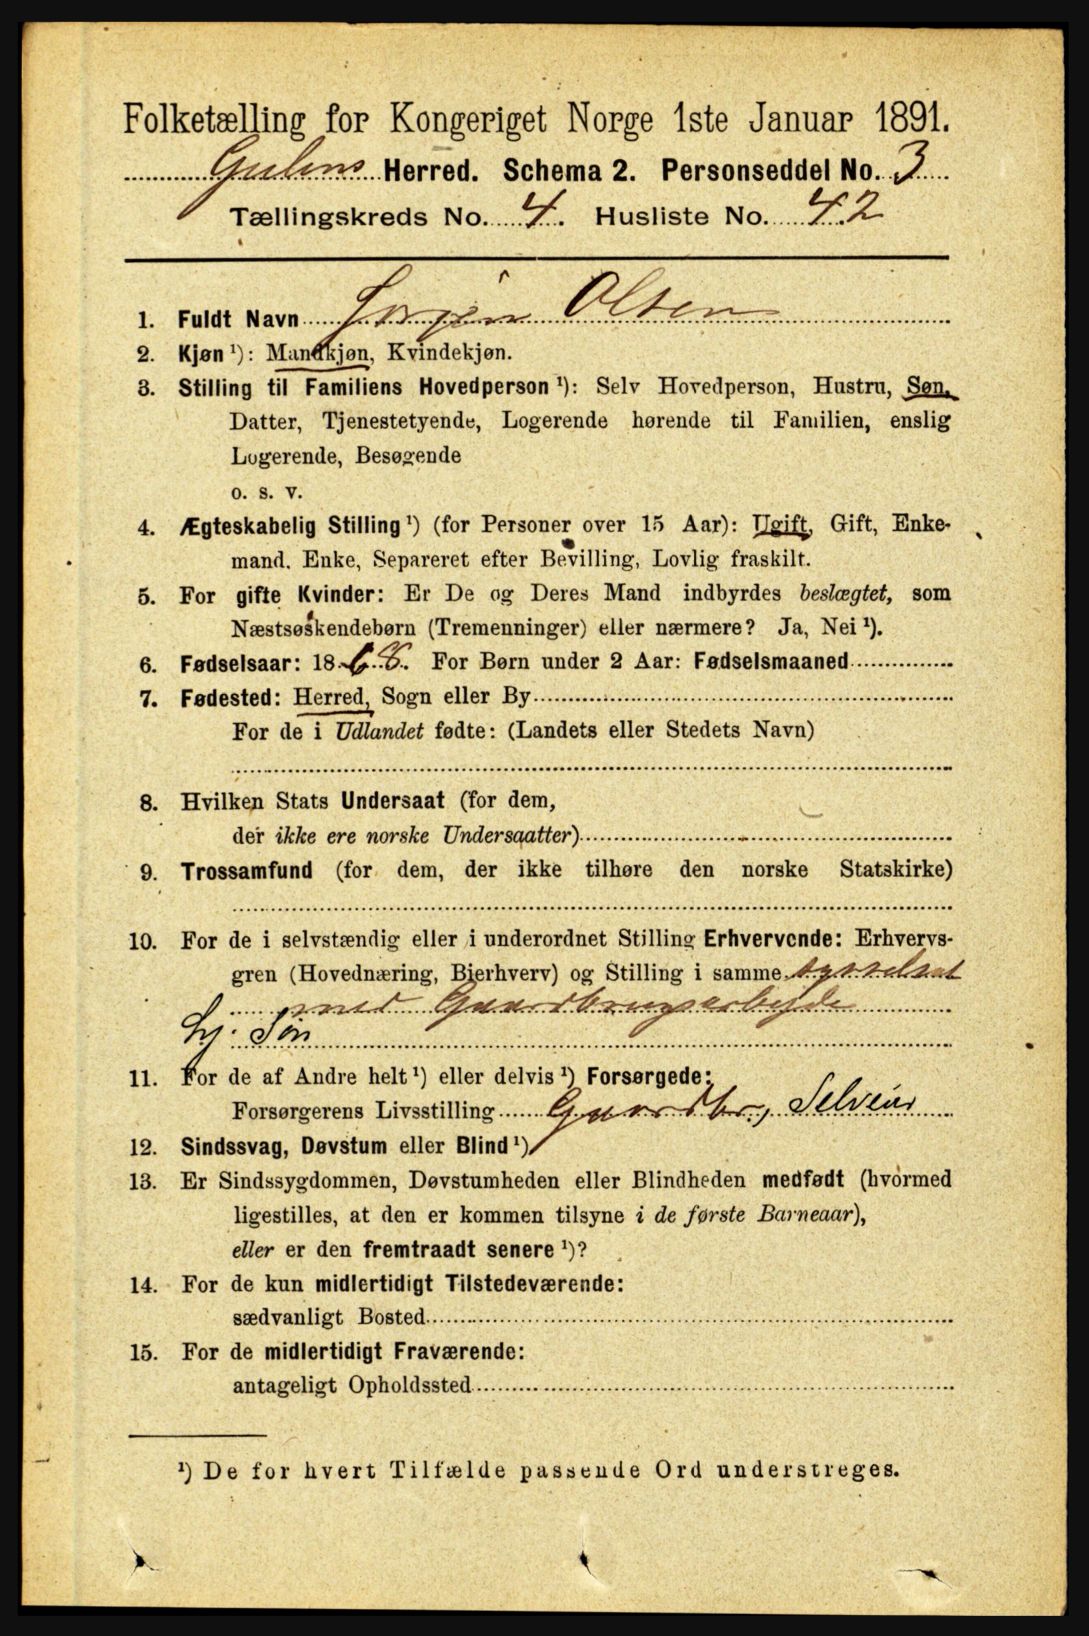 Folketælling for Kongeriget Norge 1ste Januar 1891.
Gulens Herred. Schema 2. Personseddel No. 3
Tællingskreds No. 4. Husliste No. 42
1. Fuldt Navn Jørgen Olsen
2. Kjøn ¹): Mandkjøn, Kvindekjøn.
3. Stilling til Familiens Hovedperson ¹): Selv Hovedperson, Hustru, Søn,
Datter, Tjenestetyende, Logerende hørende til Familien, enslig
Logerende, Besøgende
o. s. v.
4. Ægteskabelig Stilling ¹) (for Personer over 15 Aar): Ugift, Gift, Enke-
mand, Enke, Separeret efter Bevilling, Lovlig fraskilt.
5. For gifte Kvinder: Er De og Deres Mand indbyrdes beslægtet, som
Næstsøskendebørn (Tremenninger) eller nærmere? Ja, Nei ¹).
6. Fødselsaar: 1868. For Børn under 2 Aar: Fødselsmaaned
7. Fødested: Herred, Sogn eller By
For de i Udlandet fødte: (Landets eller Stedets Navn)
8. Hvilken Stats Undersaat (for dem,
der ikke ere norske Undersaatter)
9. Trossamfund (for dem, der ikke tilhøre den norske Statskirke)
10. For de i selvstændig eller i underordnet Stilling Erhvervende: Erhvervs-
gren (Hovednæring, Bierhverv) og Stilling i samme sysselsat
med Gaardbrugsarbejde
hj. Søn
11. For de af Andre helt ¹) eller delvis ¹) Forsørgede:
Forsørgerens Livsstilling Gaardbr., Selveier
12. Sindssvag, Døvstum eller Blind ¹)
13. Er Sindssygdommen, Døvstumheden eller Blindheden medfødt (hvormed
ligestilles, at den er kommen tilsyne i de første Barneaar),
eller er den fremtraadt senere ¹)?
14. For de kun midlertidigt Tilstedeværende:
sædvanligt Bosted
15. For de midlertidigt Fraværende:
antageligt Opholdssted
¹) De for hvert Tilfælde passende Ord understreges.